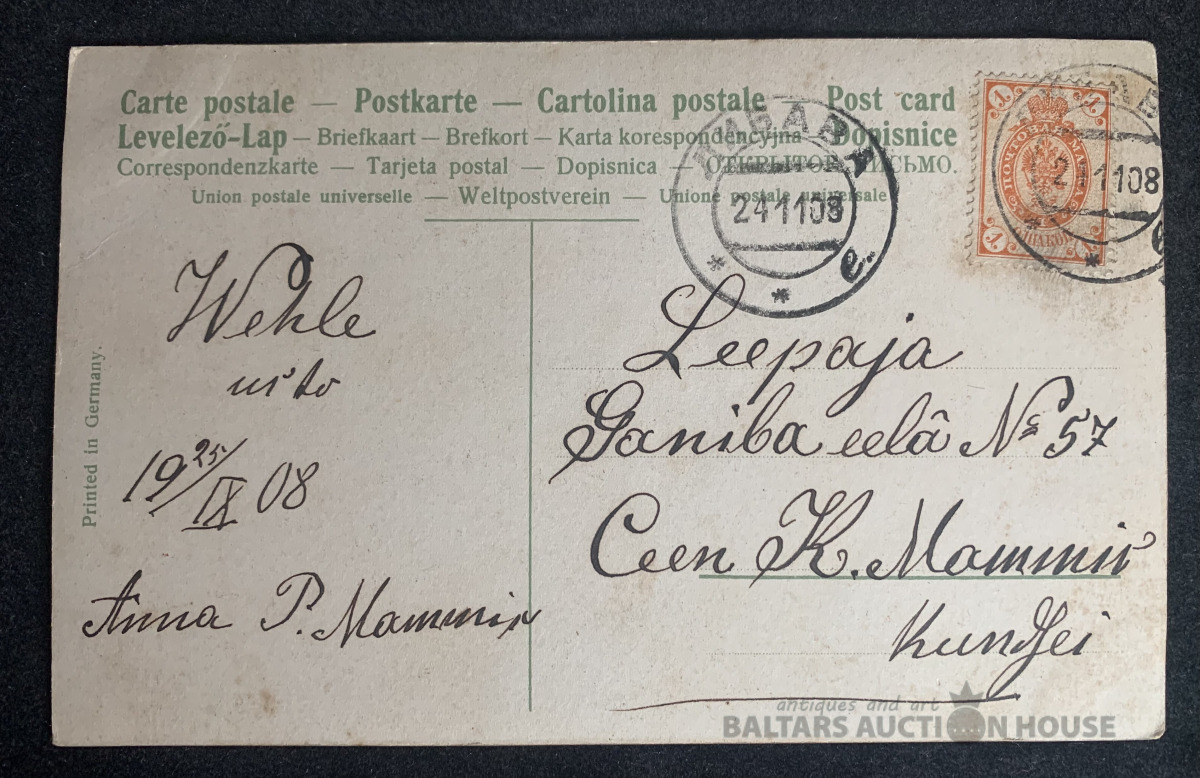 Carte postale — Postkarte — Cartolina postale — Post card
Levelező-Lap — Briefkaart — Brefkort — Karta korespondencyjna — Dopisnice
Correspondenzkarte — Tarjeta postal — Dopisnica — ОТКРЫТОЕ ПИСЬМО.
Union postale universelle — Weltpostverein — Unione postale universale
24 11 08
е.
24 11 08
Wehle
19 25/IX 08
Anna P. Mammin
Printed in Germany.
Leepaja
Ganiba eelâ № 57
Ceen K. Mammin
Kundsei
antiques and art
BALTARS AUCTION HOUSE